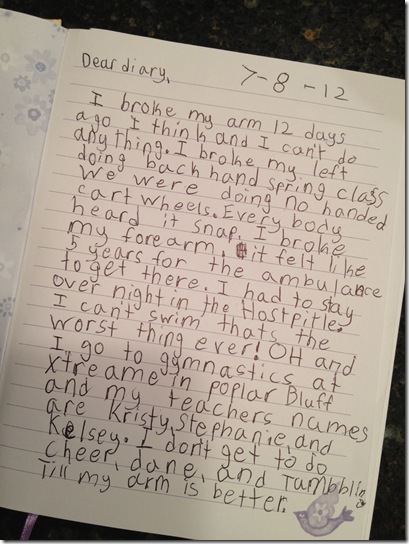 Dear diary,
7-8-12
I broke my arm 12 days
ago I think and I can't do
anything. I broke my left
doing back hand spring class
We were doing no handed
cart wheels. Every body
heard it snap. I broke
my forearm. it felt like
5 years for the ambulance
to get there. I had to stay
over night in the Hostpitle.
I can't swim thats the
worst thing ever! OH and
I go to gymnastics at
xtreame in poplar Bluff
and my teachers names
are Kristy, Stephanie, and
Kelsey. I don't get to do
cheer, dane, and Tumbblin
Till my arm is better.